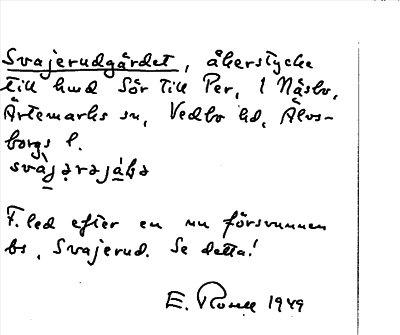 Svajerudgärdet, åkerstycke
till hmd Sör till Per, 1 Näsbo,
Ärtemarks sn, Vedbo hd, Älvs-
borgs l.
F. led efter en nu försvunnen
bs, Svajerud. Se detta!
E. Rosell 1949